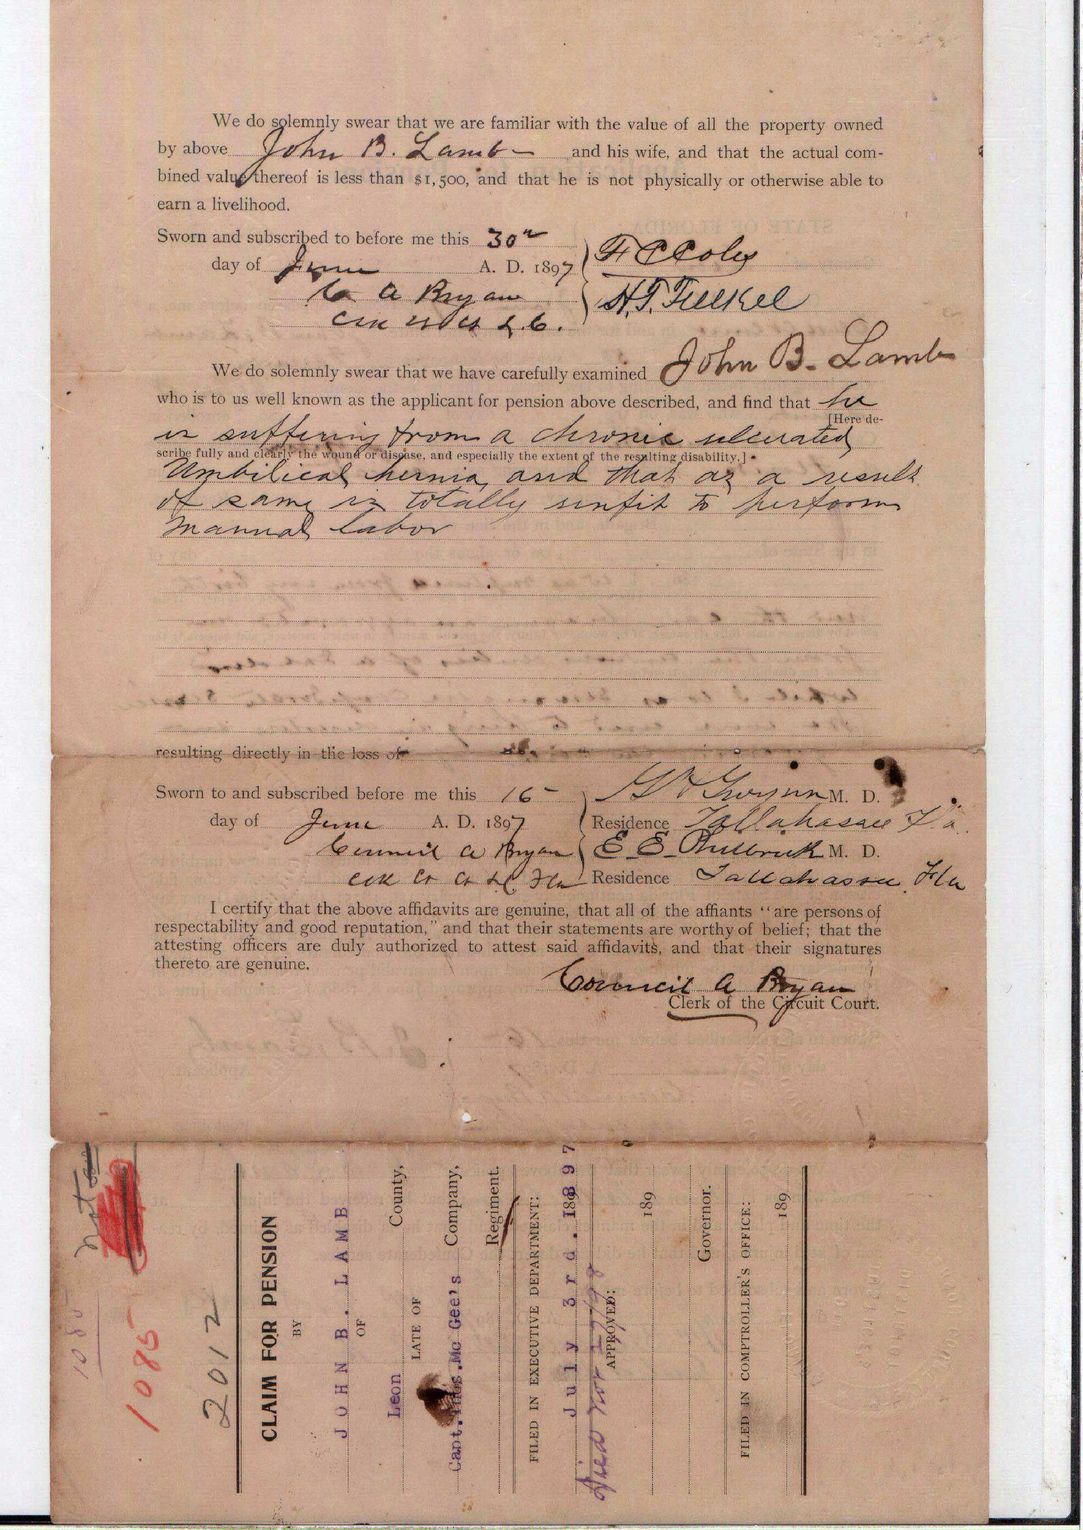 We do solemnly swear that we are familiar with the value of all the property owned
by above John B. Lamb and his wife, and that the actual com-
bined value thereof is less than $1,500, and that he is not physically or otherwise able to
earn a livelihood.
Sworn and subscribed to before me this 30th
day of June A. D. 1897
F C Coles
C A Bryan
H. T. Felkel
Clk
We do solemnly swear that we have carefully examined John B. Lamb
who is to us well known as the applicant for pension above described, and find that he
[Here de-
is suffering from a chronic ulcerated
scribe fully and clearly the wound or disease, and especially the extent of the resulting disability.]
Umbilical hernia, and that as a result
of same is totally unfit to perform
manual labor
resulting directly in the loss of
Sworn to and subscribed before me this 16 Gwynn M. D.
day of June A. D. 1897 Residence Tallahassee Fla.
Council A Bryan E. E. Philbrick M. D.
Clk Ct Fla Residence Tallahassee, Fla
I certify that the above affidavits are genuine, that all of the affiants "are persons of
respectability and good reputation," and that their statements are worthy of belief; that the
attesting officers are duly authorized to attest said affidavits, and that their signatures
thereto are genuine.
Council A Bryan
Clerk of the Circuit Court.
Not
1085
1085
2012
CLAIM FOR PENSION
BY
JOHN B. LAMB
OF
Leon County,
LATE OF
Capt. Thos. Mc Gee's Company,
Regiment.
FILED IN EXECUTIVE DEPARTMENT:
July 3rd. 1897
Died Nov
APPROVED:
189
Governor.
FILED IN COMPTROLLER'S OFFICE:
189